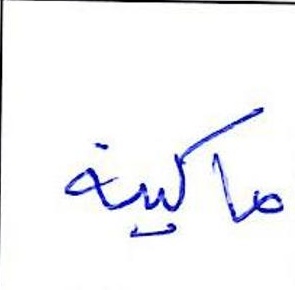 ماكينة